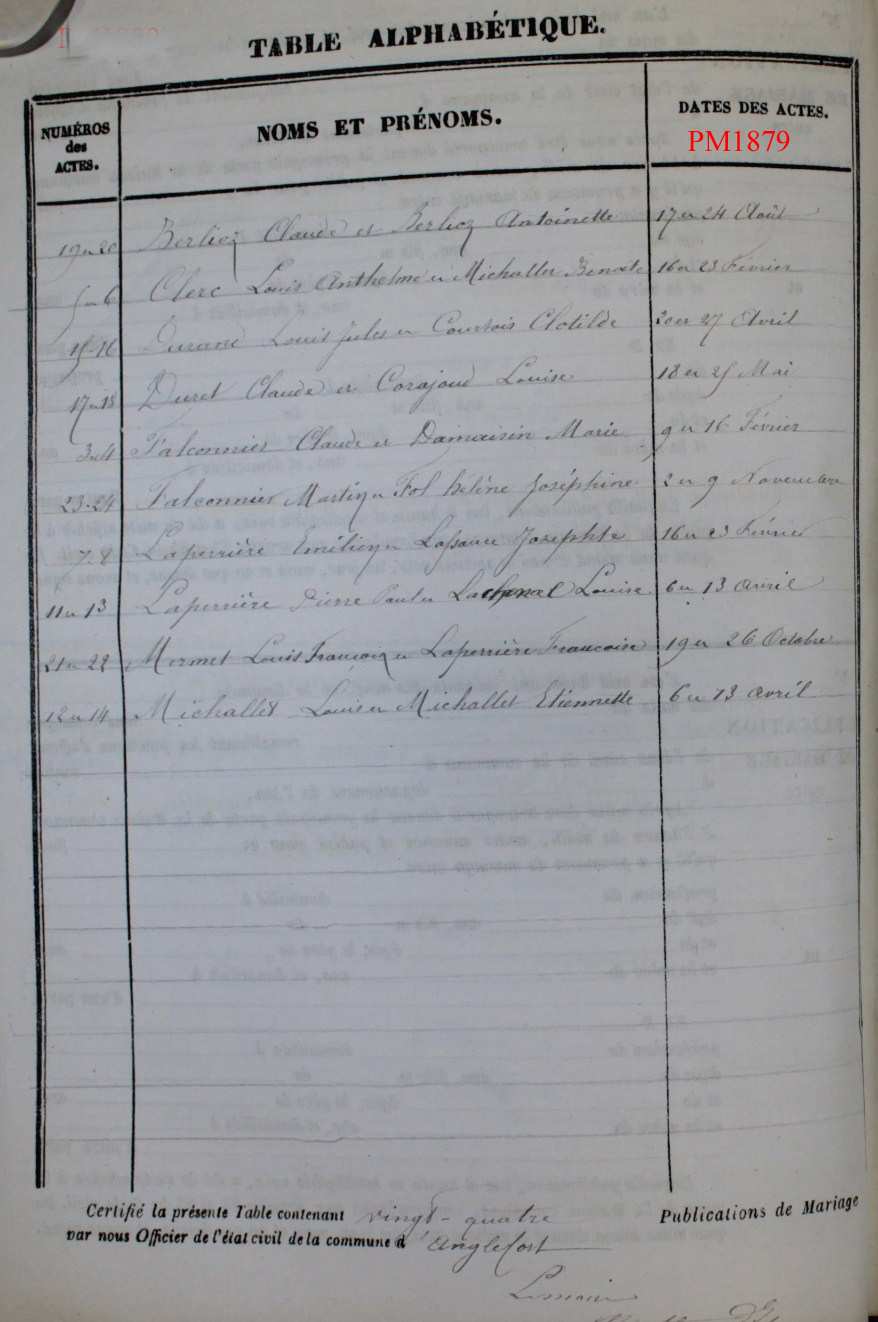 TABLE ALPHABÉTIQUE.
NUMÉROS des ACTES. NOMS ET PRÉNOMS. DATES DES ACTES.
PM1879
19 et 20 Berliez Claude et Berliez Antoinette 17 et 24 Août
5 et 6 Clerc Louis Anthelme et Michallet Benoite 16 et 23 Février
15-16 Durand Louis Jules et Courtois Clotilde 20 et 27 Avril
17 et 18 Duret Claude et Corajoud Louise 18 et 25 Mai
3 et 4 Falconnier Claude et Damaisin Marie 9 et 16 Février
23-24 Falconnier Martin et Fol hélène Joséphine 2 et 9 Novembre
7-8 Laperrière Emilien et Josephte 16 et 23 Février
11 et 13 Laperrière Pierre Paul et Lachenal Louise 6 et 13 avril
21 et 22 Mermet Louis François et Laperrière Francoise 19 et 26 Octobre
12 et 14 Michallet Louis et Michallet Etiennette 6 et 13 avril
Certifié la présente Table contenant vingt-quatre Publications de Mariage
par nous Officier de l'état civil de la commune d'Anglefort